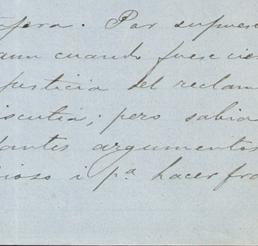 espera. Por supuest
aun cuando fuese cier
justicia del reclam
iscutia; pero sabia
dantes argumentos
cioso i pª hacer fra